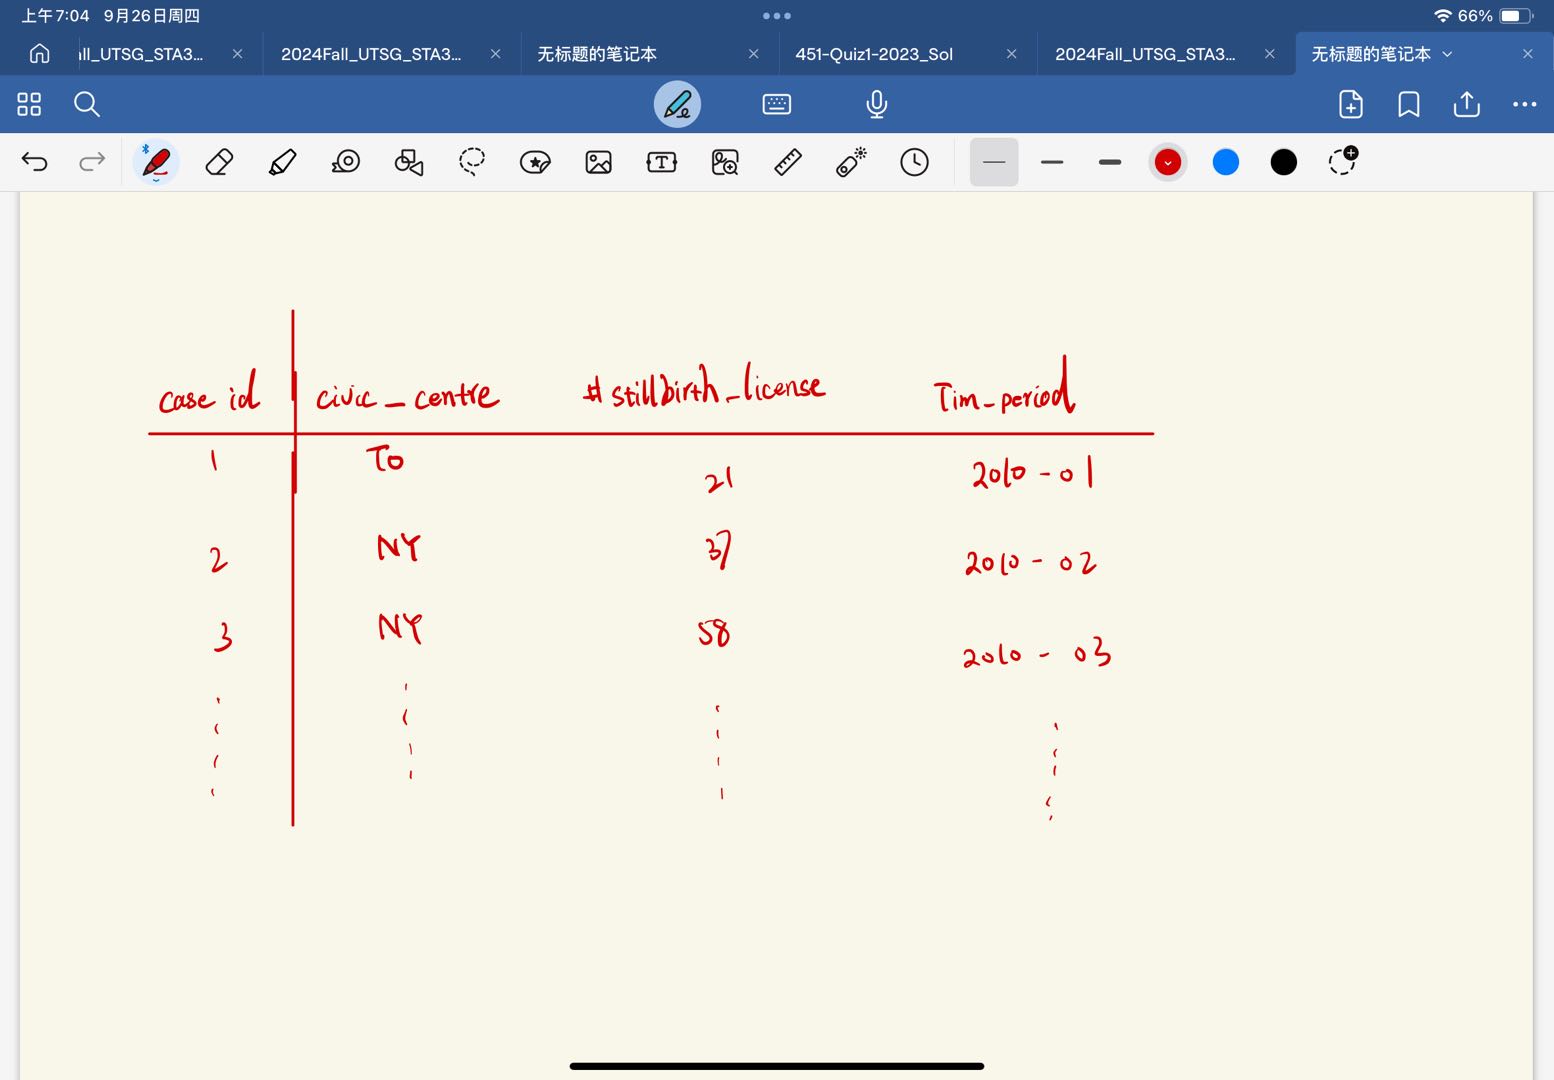 上午7:04 9月26日周四 66%
ll_UTSG_STA3... 2024Fall_UTSG_STA3... 无标题的笔记本 451-Quiz1-2023_Sol 2024Fall_UTSG_STA3... 无标题的笔记本
case id civic_centre #stillbirth_license Tim_period
1 To 21 2010-01
2 NY 37 2010-02
3 NY 58 2010-03